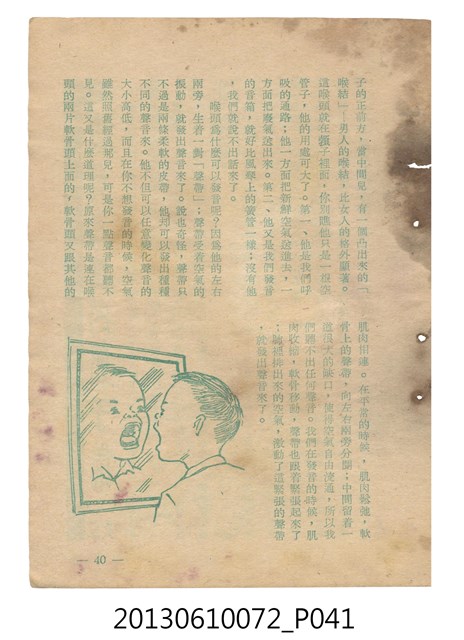 子的正前方，當中間兒，有一個凸出來的「
喉結」─男人的喉結，比女人的格外顯著。
這喉頭就在脖子裡面，你別瞧他只是一根空
管子，他的用處可大了。第一、他是我們呼
吸的通路；他一方面把新鮮空氣送進去，一
方面把廢氣送出來。第二、他又是我們發音
的音箱，就好比風琴上的簧管一樣；沒有他
，我們就說不出話來了。
喉頭為什麼可以發音呢？因為他的左右
兩旁，生着一對「聲帶」；聲帶受着空氣的
振動，就發出聲音來了。說也奇怪，聲帶只
不過是兩條柔軟的皮帶，他却可以發出種種
不同的聲音來。他不但可以任意變化聲音的
大小高低，而且在你不想發音的時候，空氣
雖然照舊經過那兒，可是你一點聲音都聽不
見。這又是什麼道理呢？原來聲帶是連在喉
頭的兩片軟骨頭上面的，軟骨頭又跟其他的
肌肉相連。在平常的時候，肌肉鬆弛，軟
骨上的聲帶，向左右兩旁分開；中間留着一
道很大的缺口，使得空氣自由流通，所以我
們聽不出任何聲音。我們在發音的時候，肌
肉收縮，軟骨移動，聲帶也跟着緊張起來了
；肺裡排出來的空氣，激動了這緊張的聲帶
，就發出聲音來了。
— 40 —
20130610072_P041